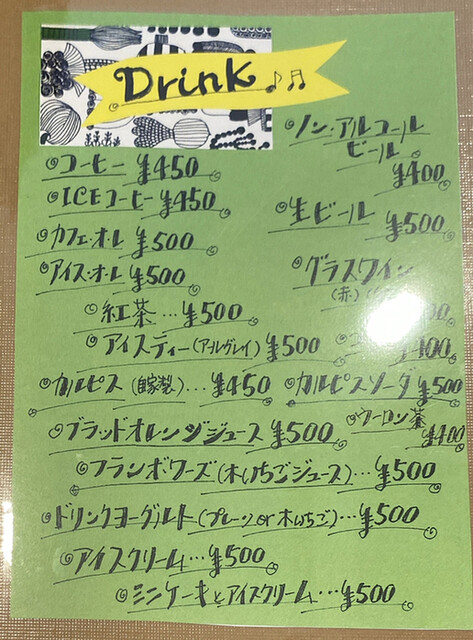 Drink ♪♬
ノン・アルコール
ビール
¥400
コーヒー ¥450
ICEコーヒー ¥450
生ビール ¥500
カフェ・オ・レ ¥500
アイス・オ・レ ¥500
グラスワイン
(赤)
紅茶…¥500
アイスティー(アールグレイ) ¥500
¥400
カルピス(自家製)…¥450
カルピスソーダ ¥500
ウーロン茶
¥400
ブラッドオレンジジュース ¥500
フランボワーズ(木いちごジュース)…¥500
ドリンクヨーグルト(プレーン or 木いちご)…¥500
アイスクリーム…¥500
ミニケーキとアイスクリーム…¥500